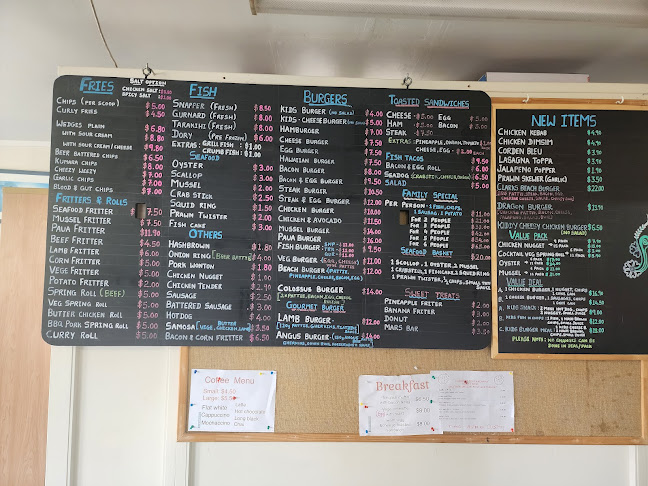 FRIES
SALT OPTION
CHICKEN SALT
SPICY SALT
CHIPS (PER SCOOP) $5.00
CURLY FRIES $4.50
WEDGES PLAIN $6.80
WITH SOUR CREAM $8.80
WITH SOUR CREAM/CHEESE $9.80
BEER BATTERED CHIPS $6.50
KUMARA CHIPS $8.00
CHEESY WEDGY
GARLIC CHIPS
BLOOD & GUT CHIPS $7.00
FRITTERS & ROLLS
SEAFOOD FRITTER $7.50
MUSSEL FRITTER
PAUA FRITTER $11.90
BEEF FRITTER $4.50
LAMB FRITTER $6.00
CORN FRITTER $5.00
VEGE FRITTER $5.00
POTATO FRITTER $2.00
SPRING ROLL (BEEF) $5.00
VEG SPRING ROLL $5.00
BUTTER CHICKEN ROLL $5.00
BBQ PORK SPRING ROLL $5.00
CURRY ROLL $5.00
FISH
SNAPPER (FRESH) $8.50
GURNARD (FRESH) $8.00
TARAKIHI (FRESH) $8.00
DORY $6.00
EXTRAS: GRILL FISH : $1.00
CRUMB FISH : $1.00
SEAFOOD
OYSTER $3.00
SCALLOP $3.00
MUSSEL $2.00
CRAB STICK $2.50
SQUID RING $1.50
PRAWN TWISTER $2.00
FISH CAKE $3.00
OTHERS
HASHBROWN $1.80
ONION RING $4.00
PORK WONTON $1.80
CHICKEN NUGGET $1.00
CHICKEN TENDER $2.90
SAUSAGE $2.50
BATTERED SAUSAGE $3.00
HOTDOG $4.00
SAMOSA $3.50
BACON & CORN FRITTER $6.50
BURGERS
KIDS BURGER (NO SALAD) $4.00
KIDS-CHEESEBURGER $5.00
HAMBURGER $7.00
CHEESE BURGER $7.50
EGG BURGER $7.50
HAWAIIAN BURGER $7.50
BACON BURGER $8.00
BACON & EGG BURGER $9.50
STEAK BURGER $10.50
STEAK & EGG BURGER $12.00
CHICKEN BURGER $10.00
CHICKEN & AVOCADO $12.50
MUSSEL BURGER $14.00
PAUA BURGER $16.00
FISH BURGER
VEG BURGER $12.00
BEACH BURGER $12.00
PINEAPPLE, CHEESE, BACON, EGG
COLOSSUS BURGER $14.00
GOURMET BURGER
LAMB BURGER $12.00
ANGUS BURGER $14.00
TOASTED SANDWICHES
CHEESE $5.00 EGG $5.00
HAM $5.00 BACON $5.00
STEAK $7.50
EXTRAS: PINEAPPLE, ONION, TOMATO
CHEESE, EGG
FISH TACOS $9.50
BACON & EGG ROLL $6.00
SEADOG $6.50
SALAD $5.00
FAMILY SPECIAL
PER PERSON - 1 FISH, CHIPS,
1 SAUSAG, 1 POTATO $11.00
FOR 2 PEOPLE $22.00
FOR 3 PEOPLE
FOR 4 PEOPLE
FOR 5 PEOPLE
FOR 6 PEOPLE
SEAFOOD BASKET $20.00
1 SCALLOP, 1 OYSTER, 2 MUSSEL
1 CRABSTICK, 1 FISHCAKE, 2 SQUID RING
1 PRAWN TWISTER, ½ CHIPS, TARTARE SAUCE
SWEET TREATS
PINEAPPLE FRITTER $2.00
BANANA FRITTER $3.00
DONUT $2.00
MARS BAR $3.00
NEW ITEMS
CHICKEN KEBAB $4.90
CHICKEN DIMSIM $4.90
CORDEN BLEU $3.90
LASAGNA TOPPA $3.90
JALAPENO POPPER $1.90
PRAWN SKEWER (GARLIC) $3.50
CLARKS BEACH BURGER $22.00
DRAGON BURGER $21.90
KIDDY CHEESY CHICKEN BURGER $6.50
(NO SALAD)
VALUE PACK
CHICKEN NUGGET
COCKTAIL VEG SPRING ROLL
OYSTER
MUSSEL
VALUE DEAL
A. 1 CHICKEN BURGER, 1 NUGGET, CHIPS
B. 1 CHEESE BURGER, 1 SAUSAGE, CHIPS
PLEASE NOTE: WE CANNOT
Coffee Menu
Small: $4.50
Large:
Flat white
Cappuccino
Mochaccino
Latte
Hot chocolate
Long black
Chai
Breakfast